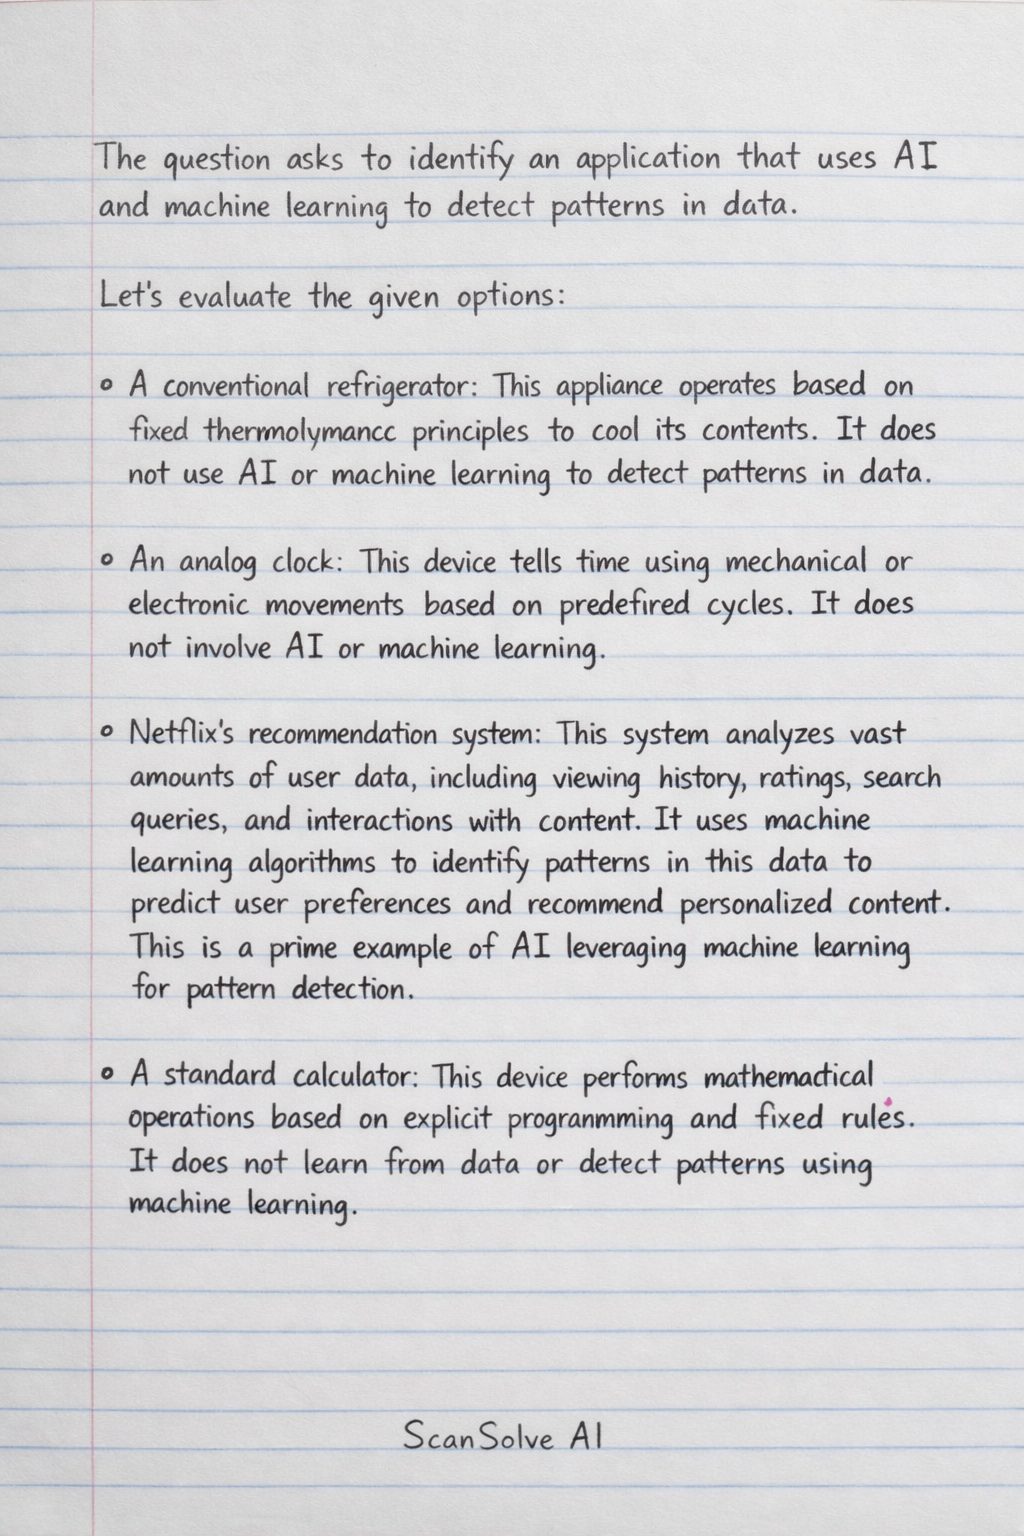 The question asks to identify an application that uses AI
and machine learning to detect patterns in data.
Let's evaluate the given options:
∘ A conventional refrigerator: This appliance operates based on
fixed thermolymancc principles to cool its contents. It does
not use AI or machine learning to detect patterns in data.
∘ An analog clock: This device tells time using mechanical or
electronic movements based on predefired cycles. It does
not involve AI or machine learning.
∘ Netflix's recommendation system: This system analyzes vast
amounts of user data, including viewing history, ratings, search
queries, and interactions with content. It uses machine
learning algorithms to identify patterns in this data to
predict user preferences and recommend personalized content.
This is a prime example of AI leveraging machine learning
for pattern detection.
∘ A standard calculator: This device performs mathemactical
operations based on explicit progranmming and fixed rules.
It does not learn from data or detect patterns using
machine learning.
ScanSolve AI